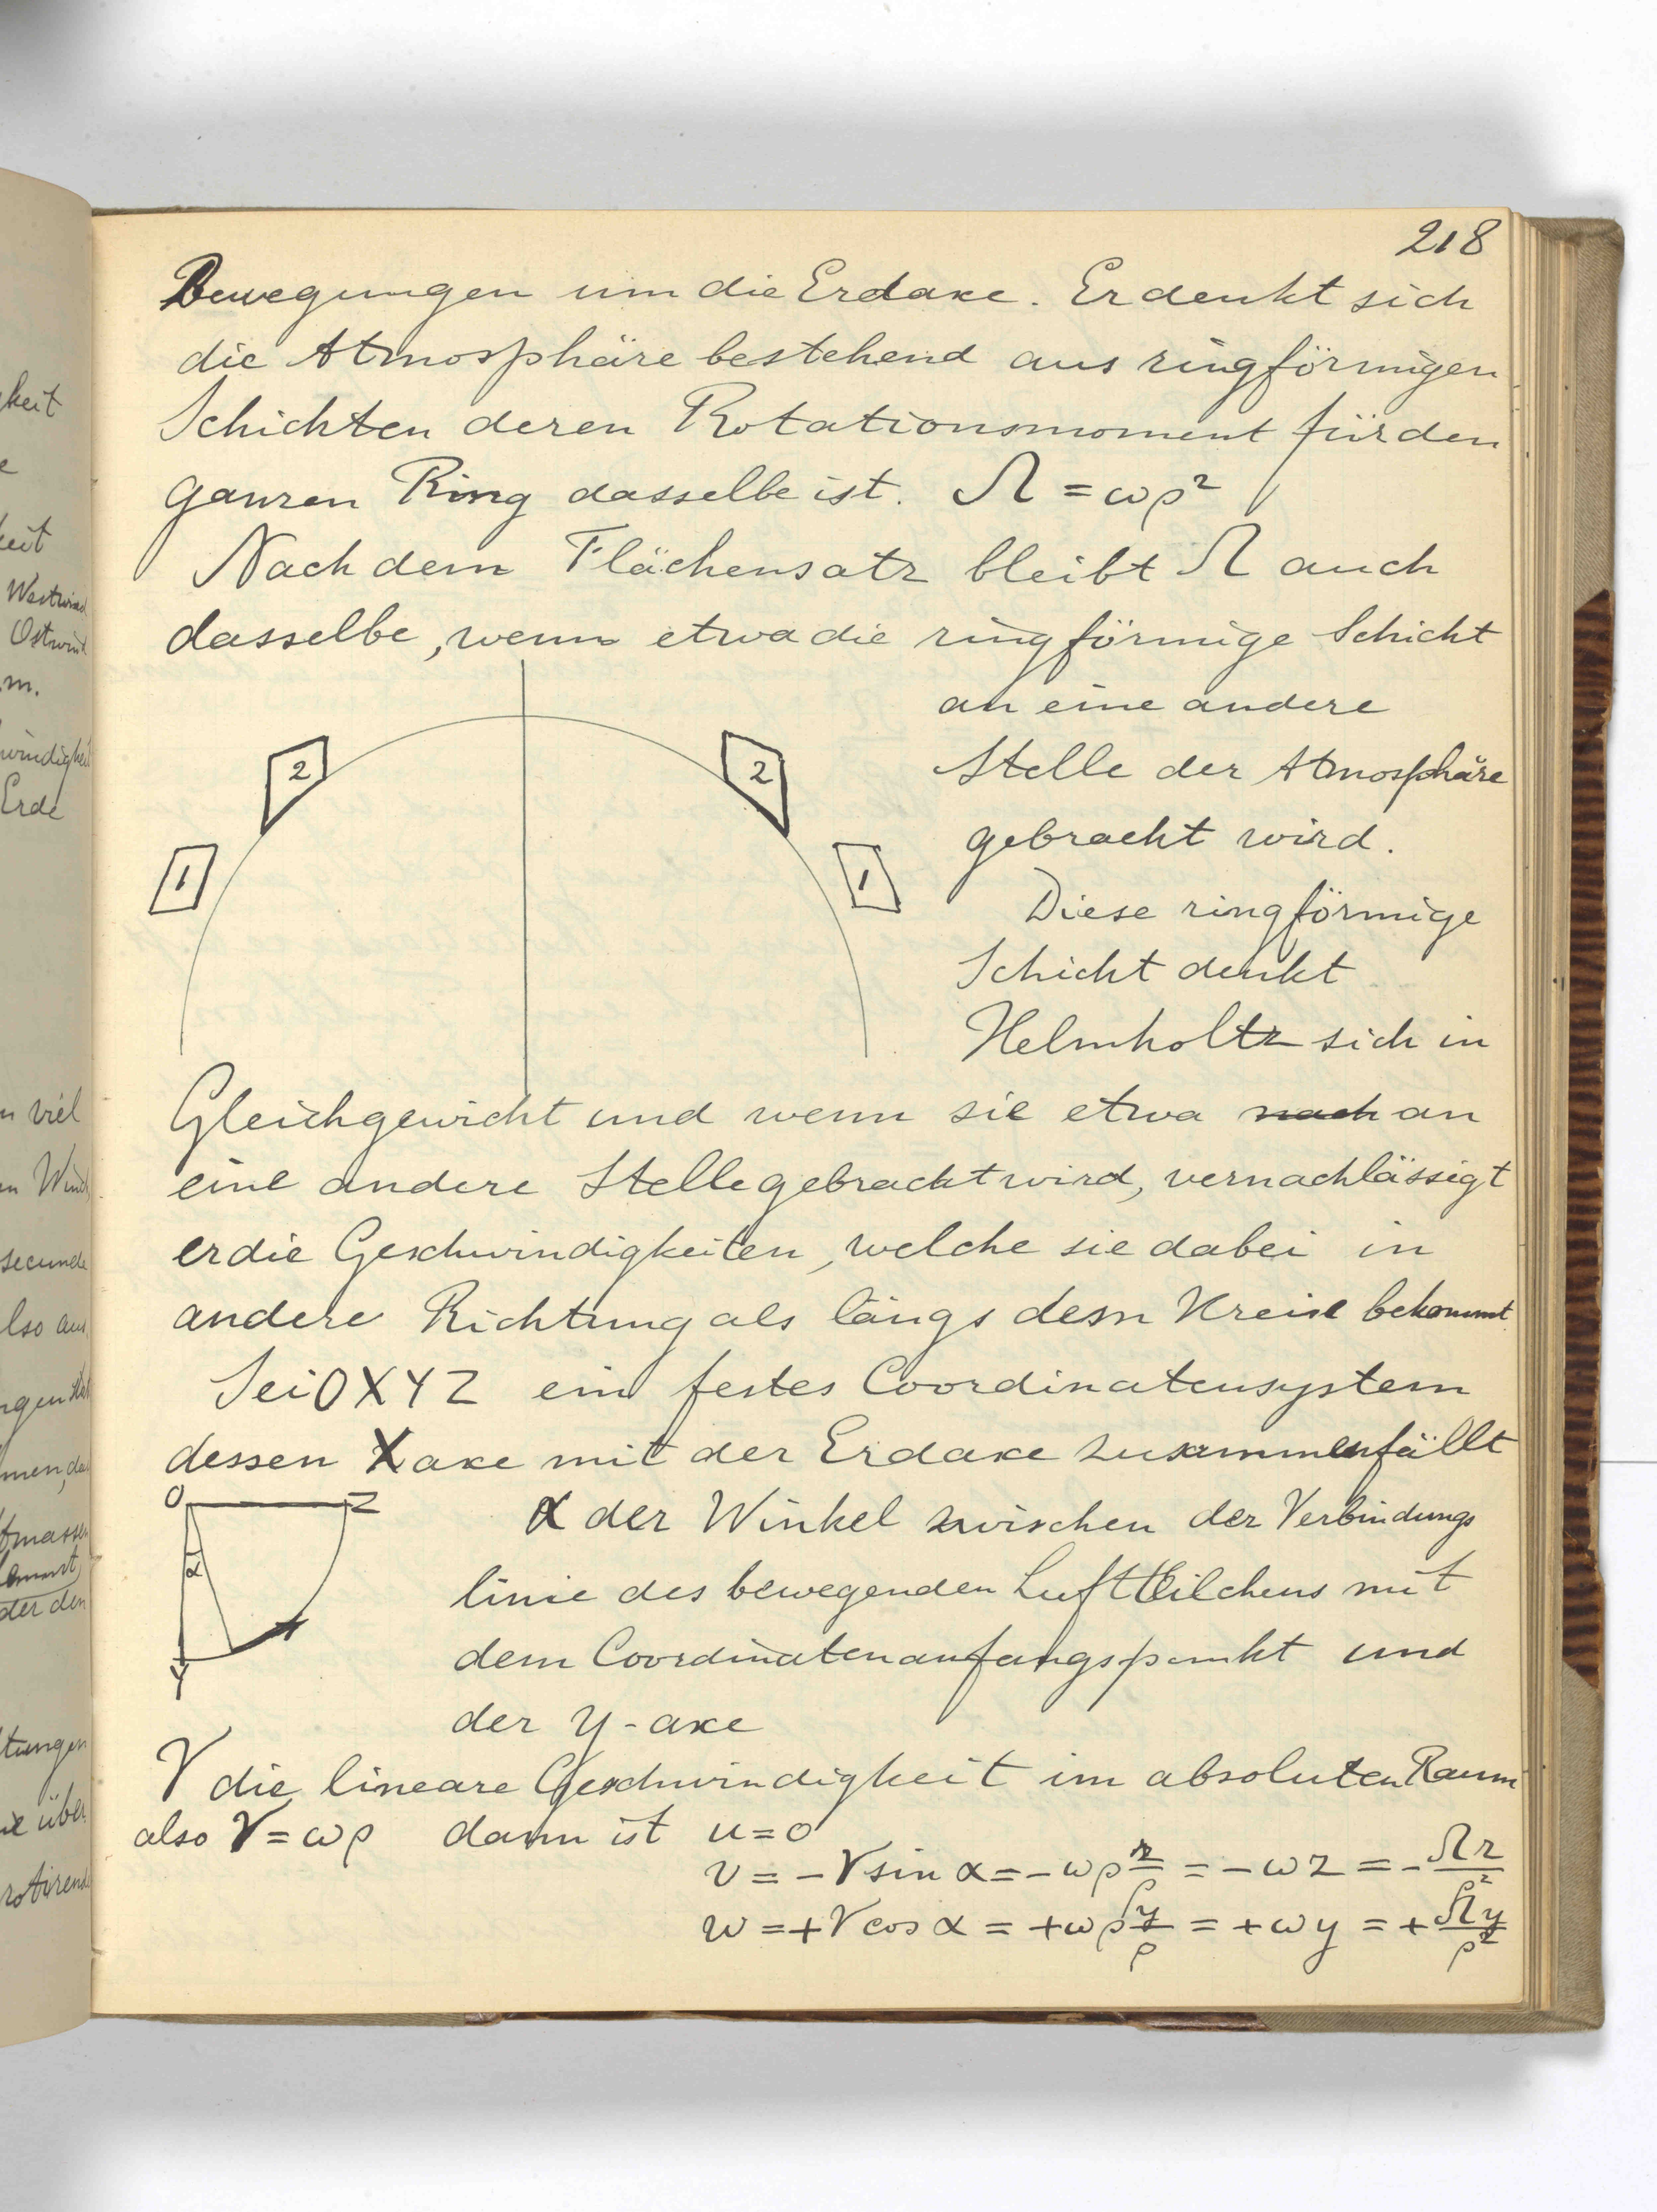 218
Bewegungen um die Erdaxe. Er denkt sich
die Atmosphäre bestehend aus ringförmigen
Schichten deren Rotationsmoment für den
ganzen Ring dasselbe ist. Ω = ωρ²
Nach dem Flächensatz bleibt Ω auch
dasselbe, wenn etwa die ringförmige Schicht
an eine andere
Stelle der Atmosphäre
gebracht wird.
2 2
1 1
Diese ringförmige
Schicht denkt
Helmholtz sich in
Gleichgewicht und wenn sie etwa nach an
eine andere Stelle gebracht wird, vernachlässigt
er die Geschwindigkeiten, welche sie dabei in
andere Richtung als längs dem Kreise bekommt
Sei OXYZ ein festes Coordinatensystem
dessen X axe mit der Erdaxe zusammenfällt
O Z
α
Y
α der Winkel zwischen der Verbindungs
linie des bewegenden Luftteilchens mit
dem Coordinatenanfangspunkt und
der y-axe
V die lineare Geschwindigkeit im absoluten Raum
also V = ωρ dann ist u = 0
v = - V sin α = - ωρ z/ρ = - ωz = - Ωz/ρ²
w = + V cos α = + ωρ y/ρ = + ωy = + Ωy/ρ²
keit
e
keit
Westwind
Ostwind
m.
windigkeit
Erde
n viel
n Wind
secunde
lso aus
men, da
ftmassen
der den
tungen
ie über
rotirend